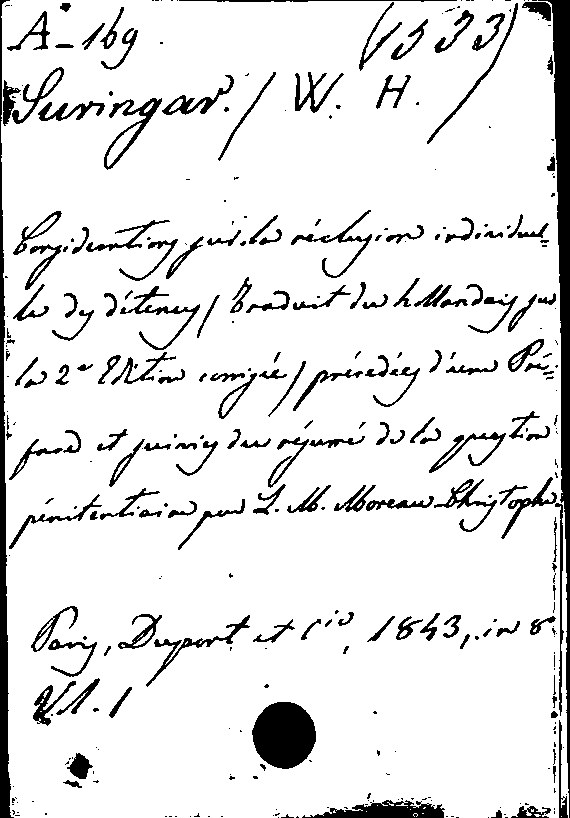 A-169 (1533)
Suringar. / W. H. /
Considerations sur la réclusion individuel=
le des détenus / Traduit du hollandais sur
la 2e Edition corrigée / précédées d'une Pré=
face et suivies du résumé de la question
pénitentiaire par L. M. Moreau-Christophe.
Paris, Dupont et Cie, 1843, in 8.
Vl. 1